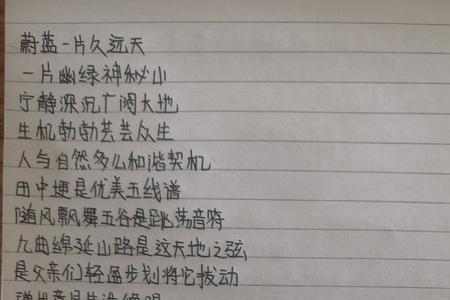 蔚蓝一片久远天
一片幽绿神秘山
宁静深沉广阔大地
生机勃勃芸芸众生
人与自然多么和谐契机
田中埂是优美五线谱
随风飘舞五谷是跳荡音符
九曲绵延山路是这天地之弦
是父亲们轻盈步划将它拨动